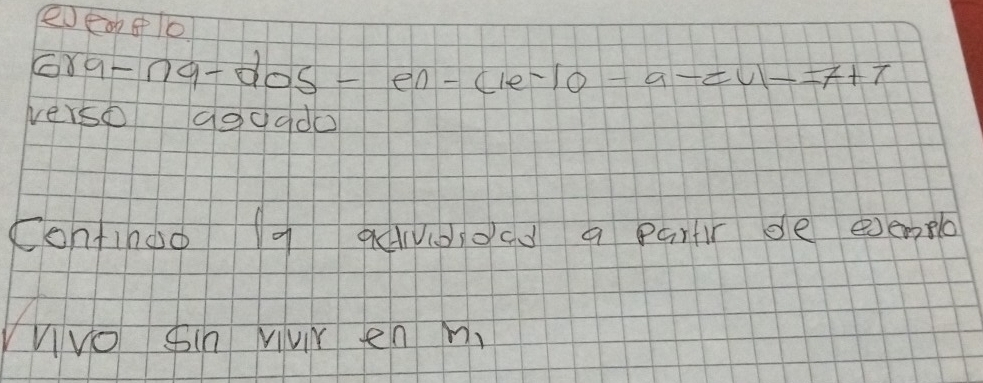 eJemplo
Gra-na-dos - en - cie-lo - a - zul - = 7+1
verso agudado
Continúo la actividad a partir de ejemplo
Vivo sin vivir en mi